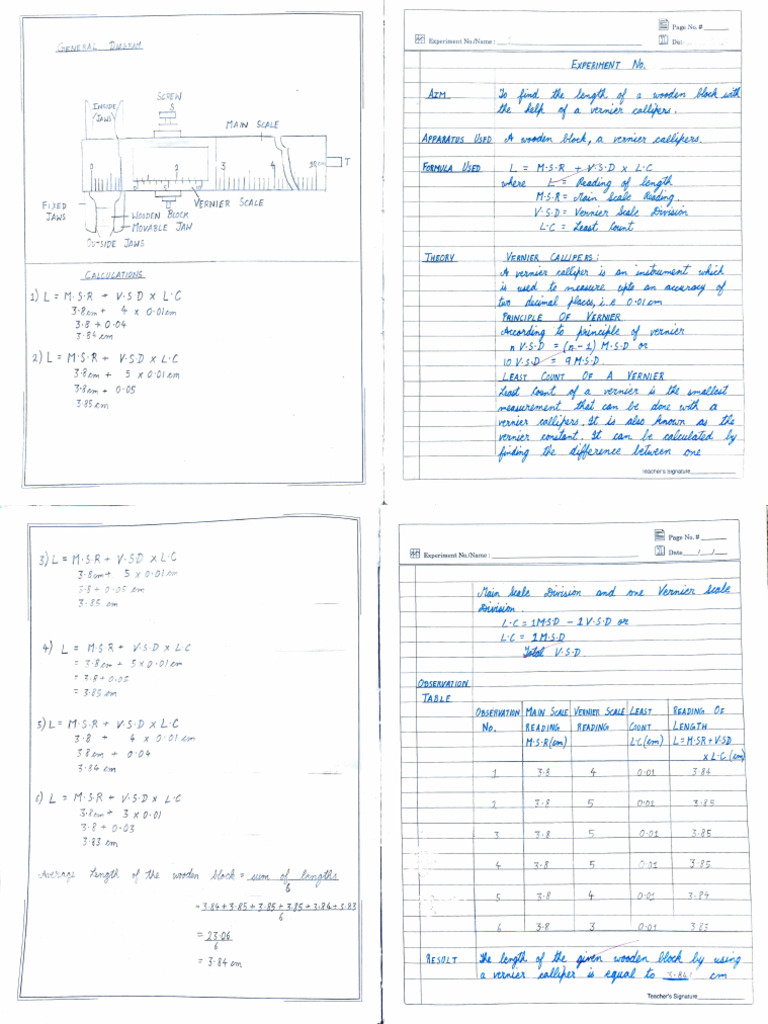 GENERAL DIAGRAM
INSIDE
JAWS
SCREW
S
MAIN SCALE
0
2
3
4
T
0
5
10
VERNIER SCALE
FIXED
JAWS
WOODEN BLOCK
MOVABLE JAW
OUTSIDE JAWS
CALCULATIONS
1) L = M.S.R + V.S.D x L.C
3.8cm + 4 x 0.01cm
3.8 + 0.04
3.84 cm
2) L = M.S.R + V.S.D x L.C
3.8cm + 5 x 0.01cm
3.8cm + 0.05
3.85 cm
Page No. #
Experiment No./Name :
Date
EXPERIMENT No.
AIM To find the length of a wooden block with
the help of a vernier callipers.
APPARATUS USED A wooden block, a vernier callipers.
FORMULA USED L = M.S.R + V.S.D x L.C
where L = Reading of length
M.S.R = Main Scale Reading.
V.S.D = Vernier Scale Division
L.C = Least Count
THEORY VERNIER CALLIPERS:
A vernier calliper is an instrument which
is used to measure upto an accuracy of
two decimal places, i.e 0.01cm
PRINCIPLE OF VERNIER
According to principle of vernier
n V.S.D = (n-1) M.S.D or
10 V.S.D = 9 M.S.D.
LEAST COUNT OF A VERNIER
Least Count of a vernier is the smallest
measurement that can be done with a
vernier callipers. It is also known as the
vernier constant. It can be calculated by
finding the difference between one
Teacher's Signature
3) L = M.S.R + V.S.D x L.C
3.8cm + 5 x 0.01cm
3.8 + 0.05 cm
3.85 cm
4) L = M.S.R + V.S.D x L.C
= 3.8cm + 5 x 0.01cm
= 3.8 + 0.05
= 3.85 cm
5) L = M.S.R + V.S.D x L.C
3.8 + 4 x 0.01 cm
3.8cm + 0.04
3.84 cm
6) L = M.S.R + V.S.D x L.C
3.8cm + 3 x 0.01
3.8 + 0.03
3.83 cm
Average Length of the wooden block = sum of lengths
6
= 3.84 + 3.85 + 3.85 + 3.85 + 3.84 + 3.83
6
= 23.06
6
= 3.84 cm
Page No. #
Experiment No./Name :
Date / /
Main Scale Division and one Vernier scale
Division.
L.C = 1M.S.D - 1V.S.D or
L.C = 1M.S.D
Total V.S.D
OBSERVATION
TABLE
OBSERVATION MAIN SCALE VERNIER SCALE LEAST READING OF
No. READING READING COUNT LENGTH
M.S.R(cm) L.C(cm) L=M.S.R+V.S.D
x L.C (cm)
1 3.8 4 0.01 3.84
2 3.8 5 0.01 3.85
3 3.8 5 0.01 3.85
4 3.8 5 0.01 3.85
5 3.8 4 0.01 3.84
6 3.8 3 0.01 3.83
RESULT The length of the given wooden block by using
a vernier calliper is equal to 3.84 cm
Teacher's Signature